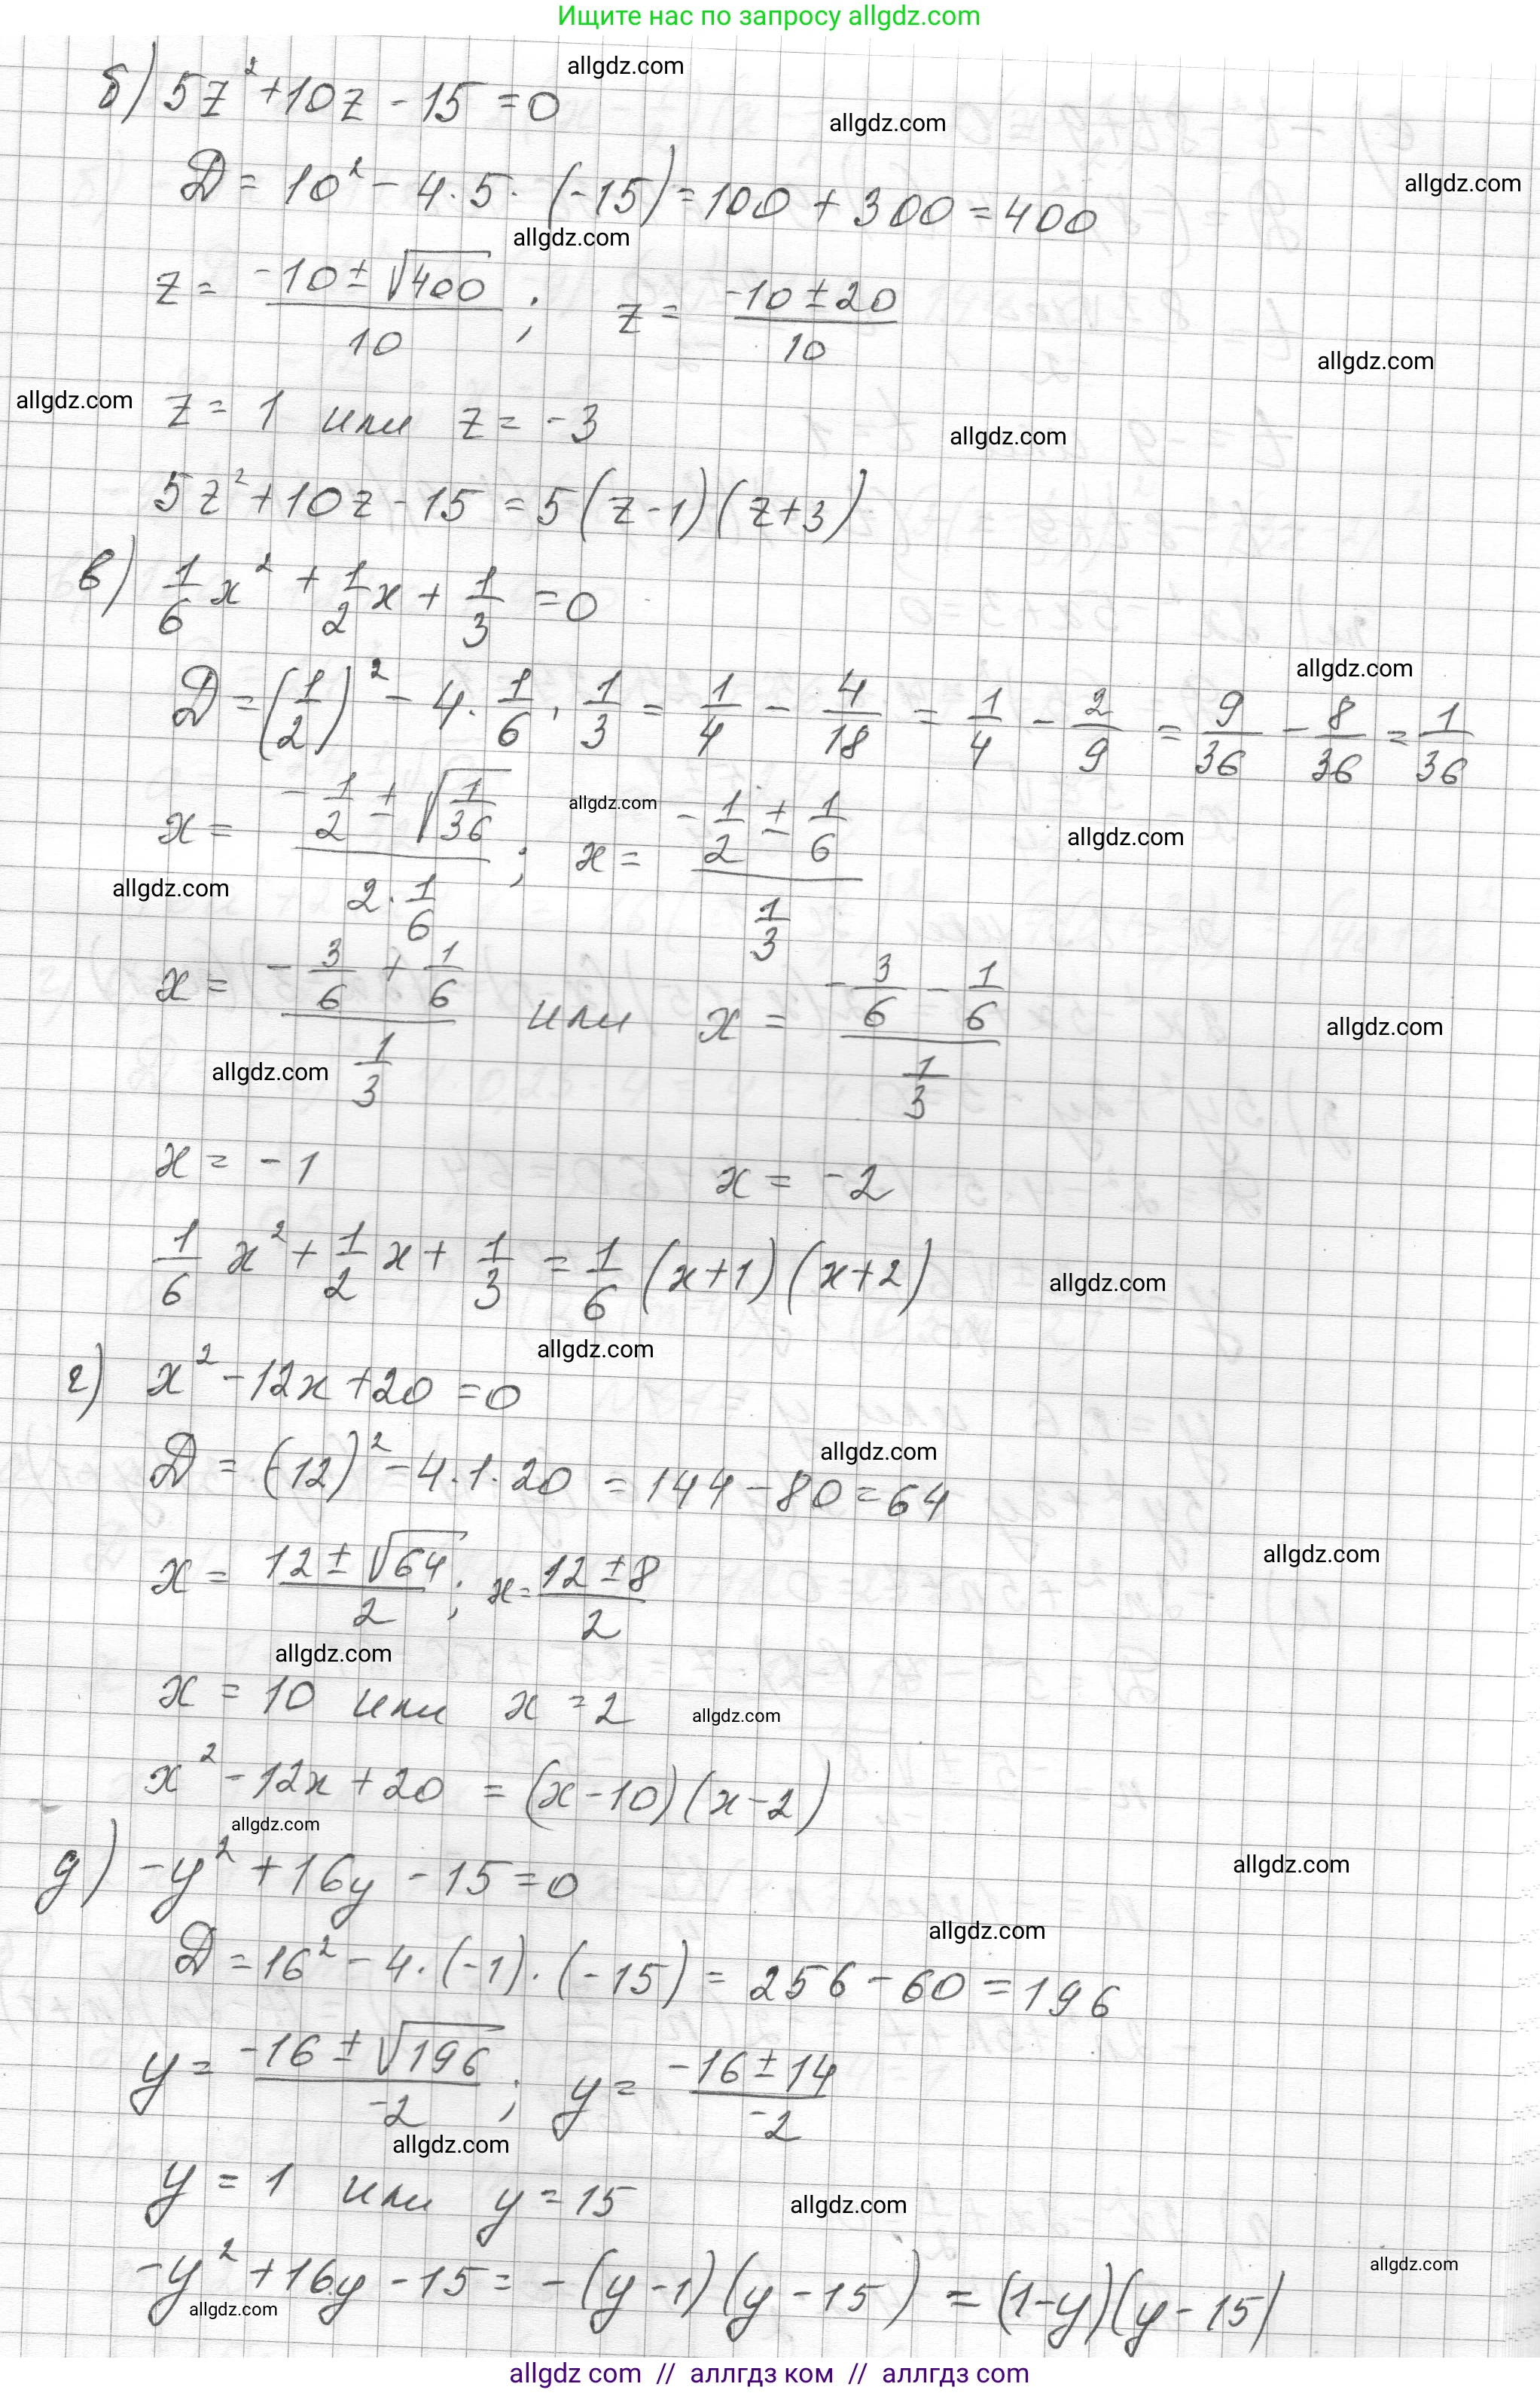 Ищите нас по запросу allgdz.com
allgdz.com
б) 5z² + 10z - 15 = 0
allgdz.com
allgdz.com
D = 10² - 4·5·(-15) = 100 + 300 = 400
allgdz.com
z = (-10 ± √400)/10 ; z = (-10 ± 20)/10
allgdz.com
allgdz.com
z = 1 или z = -3
allgdz.com
5z² + 10z - 15 = 5(z-1)(z+3)
в) 1/6 x² + 1/2 x + 1/3 = 0
allgdz.com
D = (1/2)² - 4·1/6·1/3 = 1/4 - 4/18 = 1/4 - 2/9 = 9/36 - 8/36 = 1/36
allgdz.com
x = (-1/2 ± √(1/36))/(2·1/6) ; x = (-1/2 ± 1/6)/(1/3)
allgdz.com
allgdz.com
x = (-3/6 + 1/6)/(1/3) или x = (-3/6 - 1/6)/(1/3)
allgdz.com
allgdz.com
x = -1 x = -2
1/6 x² + 1/2 x + 1/3 = 1/6 (x+1)(x+2)
allgdz.com
allgdz.com
г) x² - 12x + 20 = 0
allgdz.com
D = (-12)² - 4·1·20 = 144 - 80 = 64
allgdz.com
x = (12 ± √64)/2 ; x = (12 ± 8)/2
allgdz.com
x = 10 или x = 2
allgdz.com
x² - 12x + 20 = (x-10)(x-2)
allgdz.com
allgdz.com
д) -y² + 16y - 15 = 0
allgdz.com
D = 16² - 4·(-1)·(-15) = 256 - 60 = 196
y = (-16 ± √196)/-2 ; y = (-16 ± 14)/-2
allgdz.com
y = 1 или y = 15
allgdz.com
allgdz.com
-y² + 16y - 15 = -(y-1)(y-15) = (1-y)(y-15)
allgdz.com
allgdz com // аллгдз ком // аллгдз com